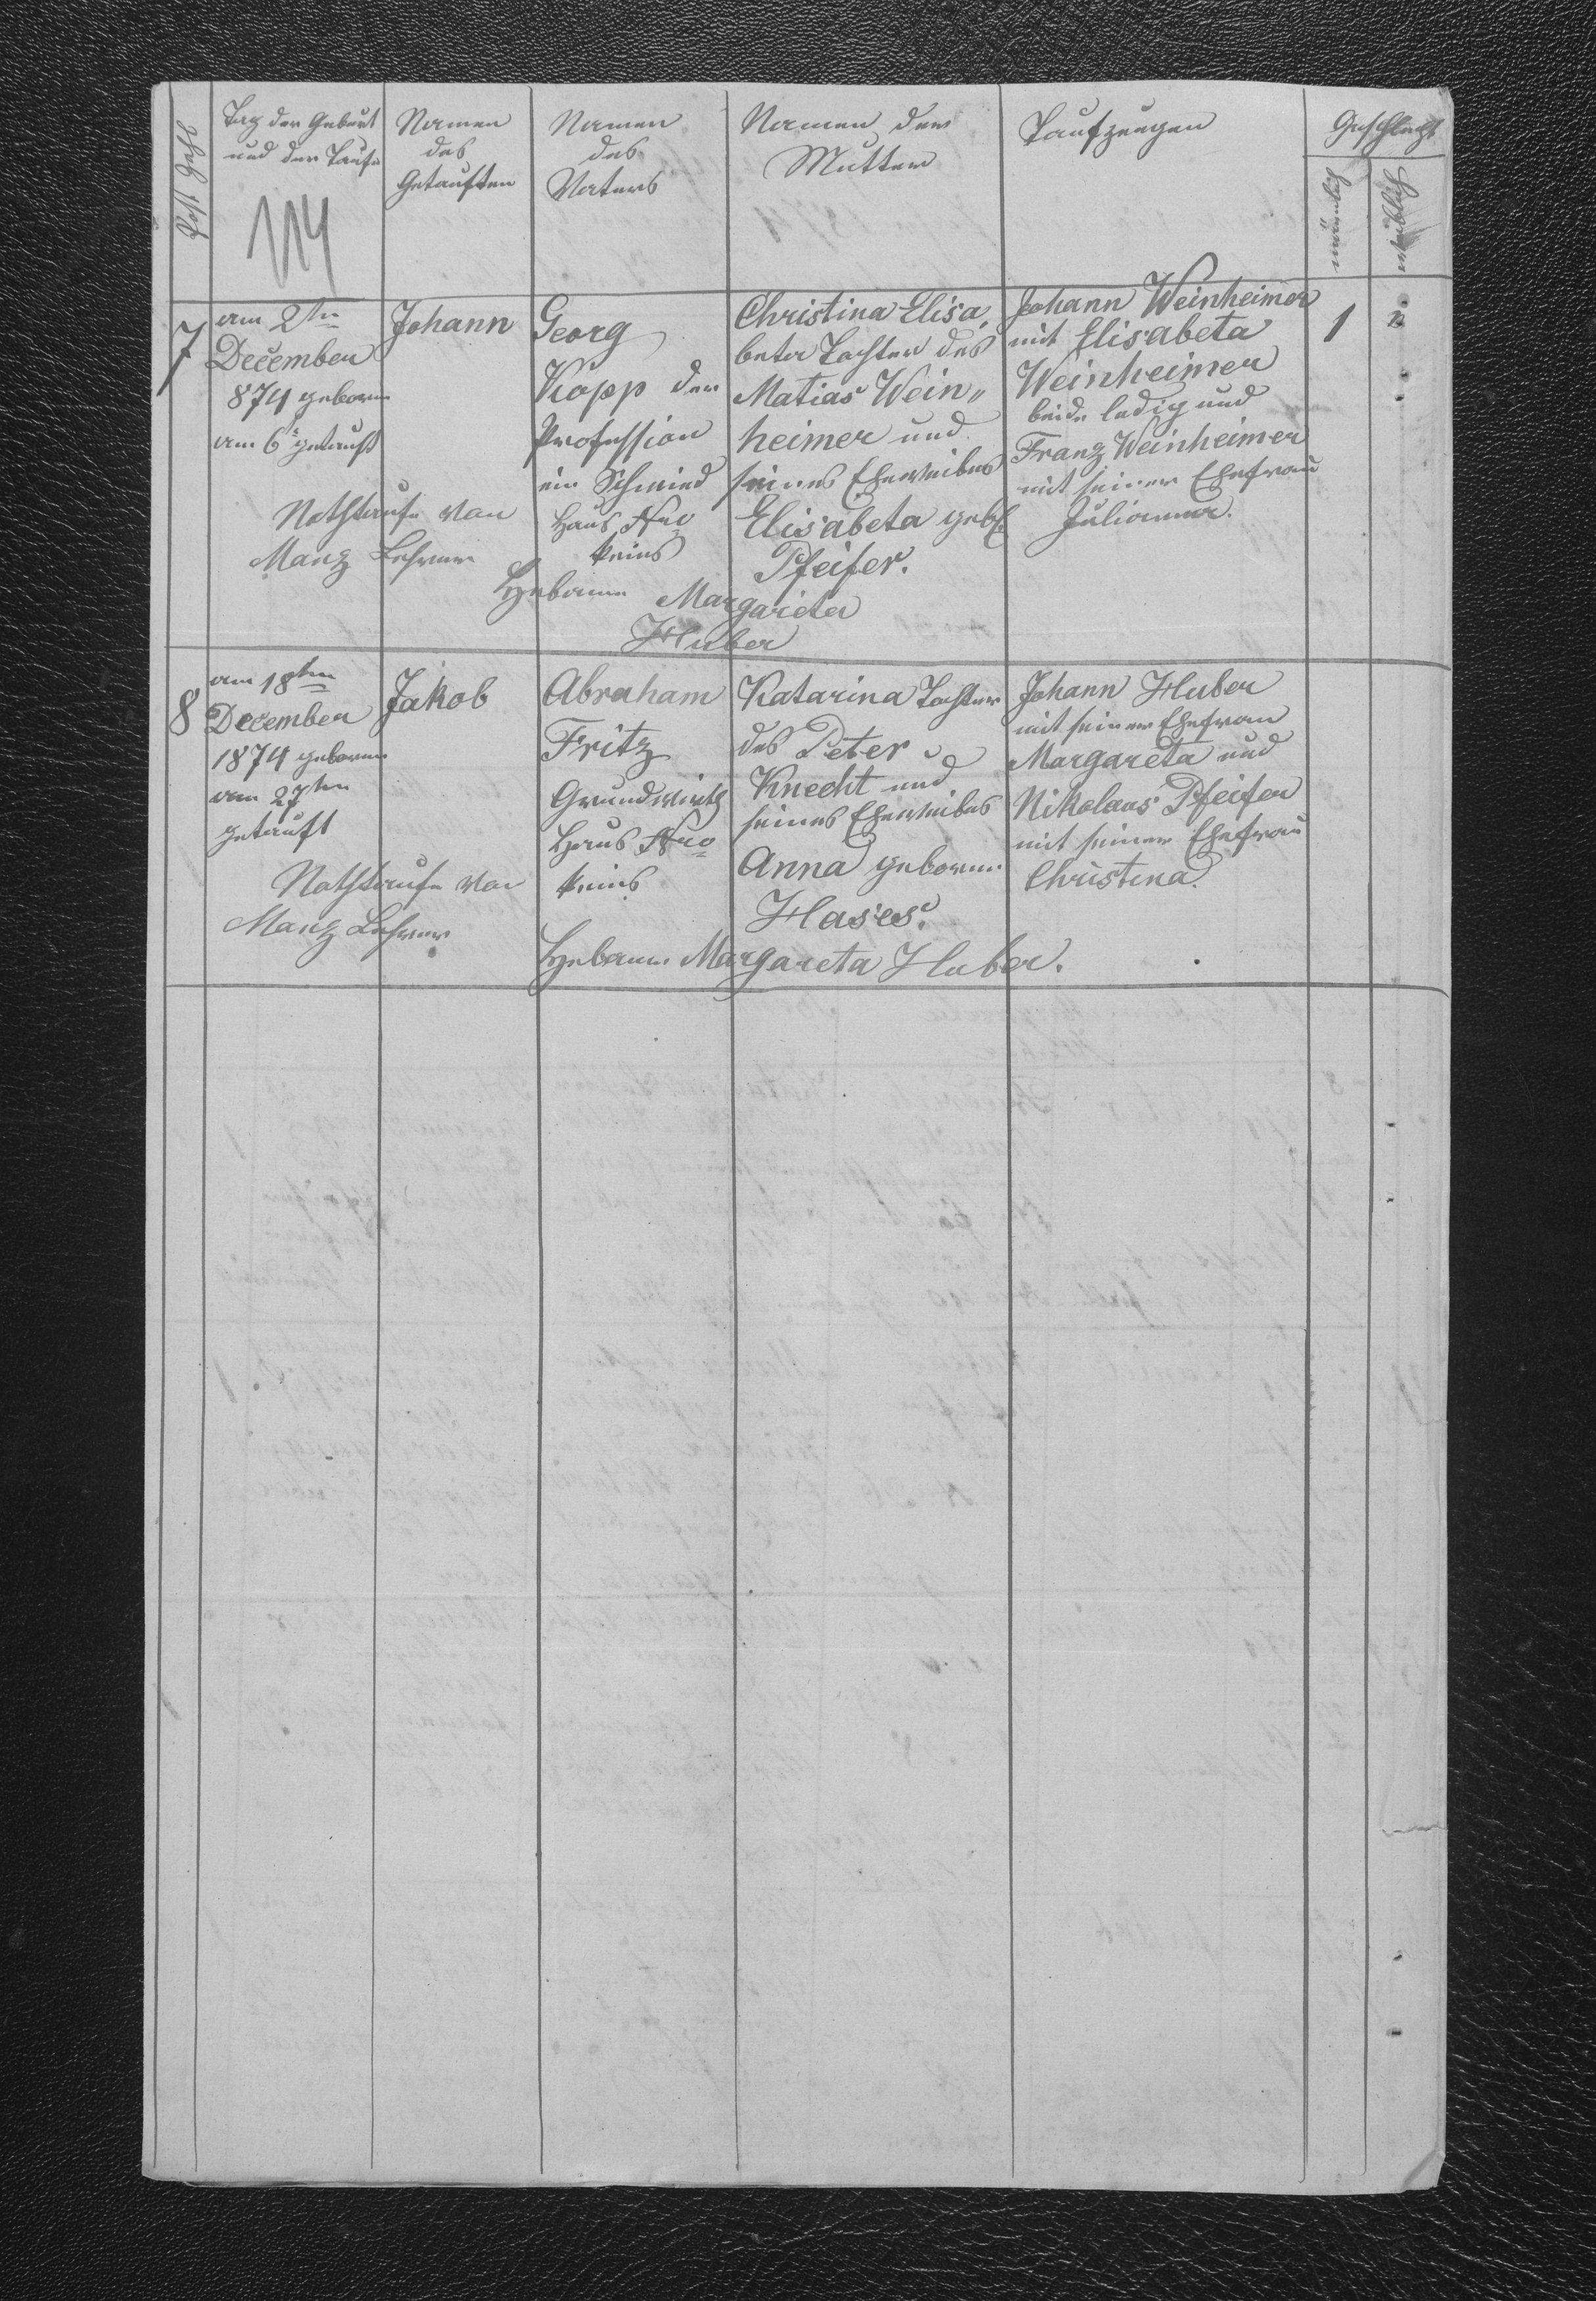 Post Zahl
Tag der Geburt
und der Taufe
114
Namen
des
Getauften
Namen
des
Vaters
Namen der
Mutter
Taufzeugen
Geschlecht
männlich
weiblich
7
am 2ten
December
874 geboren
am 6t getauft
Nothtaufe von
Manz Lehrer
Johann
Georg
Kopp der
Profession
ein Schmied
Haus Nro
keins
Hebamme Margareta
Huber
Christina Elisa,
beta Tochter des
Matias Wein„
heimer und
seines Eheweibes
Elisabeta geb.
Pfeifer.
Johann Weinheimer
mit Elisabeta
Weinheimer
beide ledig und
Franz Weinheimer
mit seiner Ehefrau
Julianna.
1
8
am 18ten
December
1874 geboren
am 27ten
getauft
Nothtaufe von
Manz Lehrer
Jakob
Abraham
Fritz
Grundwirth
Haus Nro
keins
Katarina Tochter
des Peter
Knecht und
seines Eheweibes
Anna geboren
Hases.
Hebamme Margareta Huber.
Johann Huber
mit seiner Ehefrau
Margareta und
Nikolaus Pfeifer
mit seiner Ehefrau
Christina.